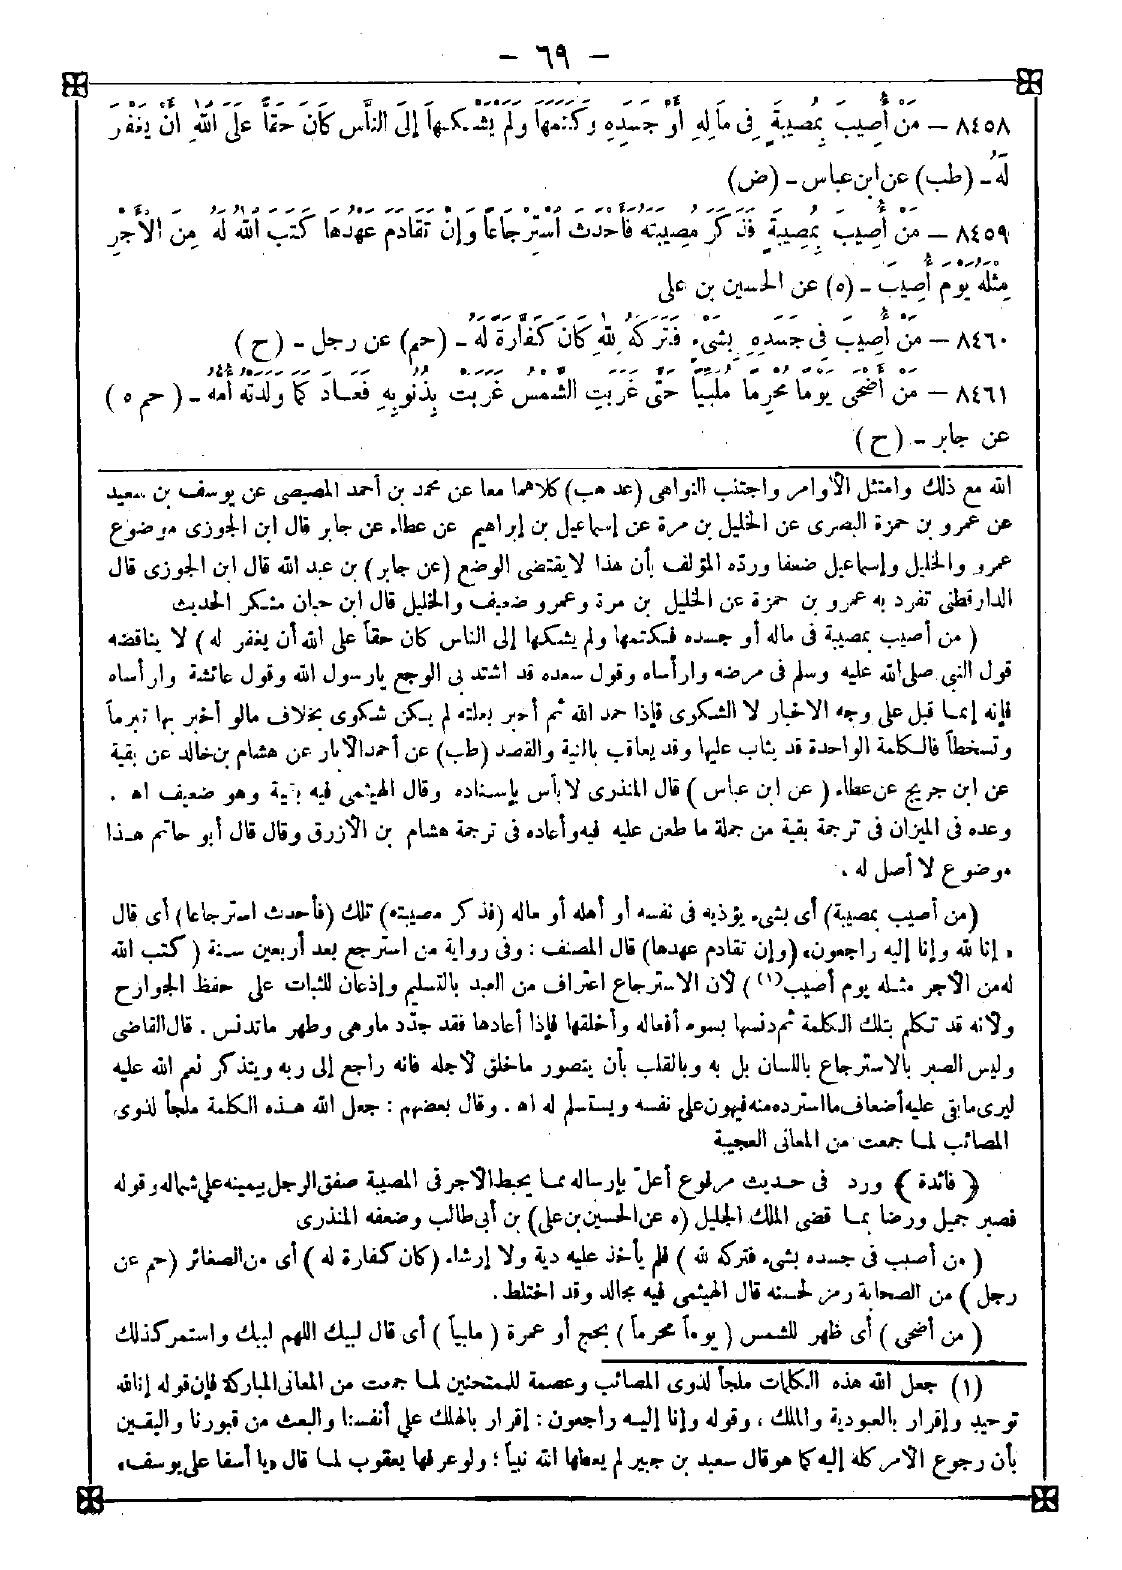 - ٦٩ -
٨٤٥٨ - مَنْ أُصِيبَ بِمُصِيبَةٍ فِى مَالِهِ أَوْ جَسَدِهِ وَكَتَمَهَا وَلَمْ يَشْكُهَا إِلَى النَّاسِ كَانَ حَقًّا عَلَى اللهِ أَنْ يَغْفِرَ
لَهُ - (طب) عن ابن عباس - (ض)
٨٤٥٩ - مَنْ أُصِيبَ بِمُصِيبَةٍ فَذَكَرَ مُصِيبَتَهُ فَأَحْدَثَ اسْتِرْجَاعًا وَإِنْ تَقَادَمَ عَهْدُهَا كَتَبَ اللهُ لَهُ مِنَ الْأَجْرِ
مِثْلَهُ يَوْمَ أُصِيبَ - (ه) عن الحسين بن على
٨٤٦٠ - مَنْ أُصِيبَ فِى جَسَدِهِ بِشَىْءٍ فَتَرَكَهُ لِلهِ كَانَ كَفَّارَةً لَهُ - (حم) عن رجل - (ح)
٨٤٦١ - مَنْ أَضْحَى يَوْمًا مُحْرِمًا مُلَبِّيًا حَتَّى غَرَبَتِ الشَّمْسُ غَرَبَتْ بِذُنُوبِهِ فَعَادَ كَمَا وَلَدَتْهُ أُمُّهُ - (حم ه)
عن جابر - (ح)
الله مع ذلك وامتثل الأوامر واجتنب النواهى (عد هب) كلاهما معا عن محمد بن أحمد المصيصى عن يوسف بن سعيد
عن عمرو بن حمزة البصرى عن الخليل بن مرة عن إسماعيل بن إبراهيم عن عطاء عن جابر قال ابن الجوزى موضوع
عمرو والخليل وإسماعيل ضعفا ورده المؤلف بأن هذا لا يقتضى الوضع (عن جابر) بن عبد الله قال ابن الجوزى قال
الدارقطنى تفرد به عمرو بن حمزة عن الخليل بن مرة وعمرو ضعيف والخليل قال ابن حبان منكر الحديث
(من أصيب بمصيبة فى ماله أو جسده فكتمها ولم يشكها إلى الناس كان حقاً على الله أن يغفر له) لا يناقضه
قول النبى صلى الله عليه وسلم فى مرضه وارأساه وقول سعده قد اشتد بى الوجع يارسول الله وقول عائشة وارأساه
فإنه إنما قيل على وجه الاخبار لا الشكوى فإذا حمد الله ثم أخبر بعلته لم يكن شكوى بخلاف مالو أخبر بها تبرماً
وتسخطاً فالكلمة الواحدة قد يثاب عليها وقد يعاقب بالنية والقصد (طب) عن أحمد الأبار عن هشام بن خالد عن بقية
عن ابن جريج عن عطاء (عن ابن عباس) قال المنذرى لا بأس بإسناده وقال الهيثمى فيه بقية وهو ضعيف اه .
وعده فى الميزان فى ترجمة بقية من جملة ما طعن عليه فيه وأعاده فى ترجمة هشام بن الأزرق وقال قال أبو حاتم هذا
موضوع لا أصل له .
(من أصيب بمصيبة) أى بشىء يؤذيه فى نفسه أو أهله أو ماله (فذكر مصيبته) تلك (فأحدث استرجاعا) أى قال
« إنا لله وإنا إليه راجعون» (وإن تقادم عهدها) قال المصنف : وفى رواية من استرجع بعد أربعين سنة (كتب الله
له من الأجر مثله يوم أصيب(١)) لأن الاسترجاع اعتراف من العبد بالتسليم وإذعان للثبات على حفظ الجوارح
ولأنه قد تكلم بتلك الكلمة ثم دنسها بسوء أفعاله وأخلقها فإذا أعادها فقد جدّد ماوهى وطهر ماتدنس . قال القاضى
وليس الصبر بالاسترجاع باللسان بل به وبالقلب بأن يتصور ماخلق لأجله فانه راجع إلى ربه ويتذكر نعم الله عليه
ليرى ما بقى عليه أضعاف ما استرده منه فيهون على نفسه ويستسلم له اه . وقال بعضهم : جعل الله هذه الكلمة ملجأ لذوى
المصائب لما جمعت من المعانى العجيبة
(فائدة) ورد فى حديث مرفوع أعلّ بإرساله مما يحبط الأجر فى المصيبة صفق الرجل بيمينه على شماله وقوله
فصبر جميل ورضا بما قضى الملك الجليل (ه عن الحسين بن على) بن أبى طالب وضعفه المنذرى
(من أصيب فى جسده بشىء فتركه لله) فلم يأخذ عليه دية ولا إرشاء (كان كفارة له) أى من الصغائر (حم عن
رجل) من الصحابة رمز لحسنه قال الهيثمى فيه مجالد وقد اختلط.
(من أضحى) أى ظهر للشمس (يوماً محرماً) بحج أو عمرة (ملبياً) أى قال لبيك اللهم لبيك واستمر كذلك
(١) جعل الله هذه الكلمات ملجأ لذوى المصائب وعصمة للممتحنين لما جمعت من المعانى المباركة فإن قوله إنا لله
توحيد وإقرار بالعبودية والملك ، وقوله وإنا إليه راجعون : إقرار بالهلك على أنفسنا والبعث من قبورنا واليقين
بأن رجوع الأمر كله إليه كما هو قال سعيد بن جبير لم يعطها الله نبياً ؛ ولو عرفها يعقوب لما قال «يا أسفا على يوسف»